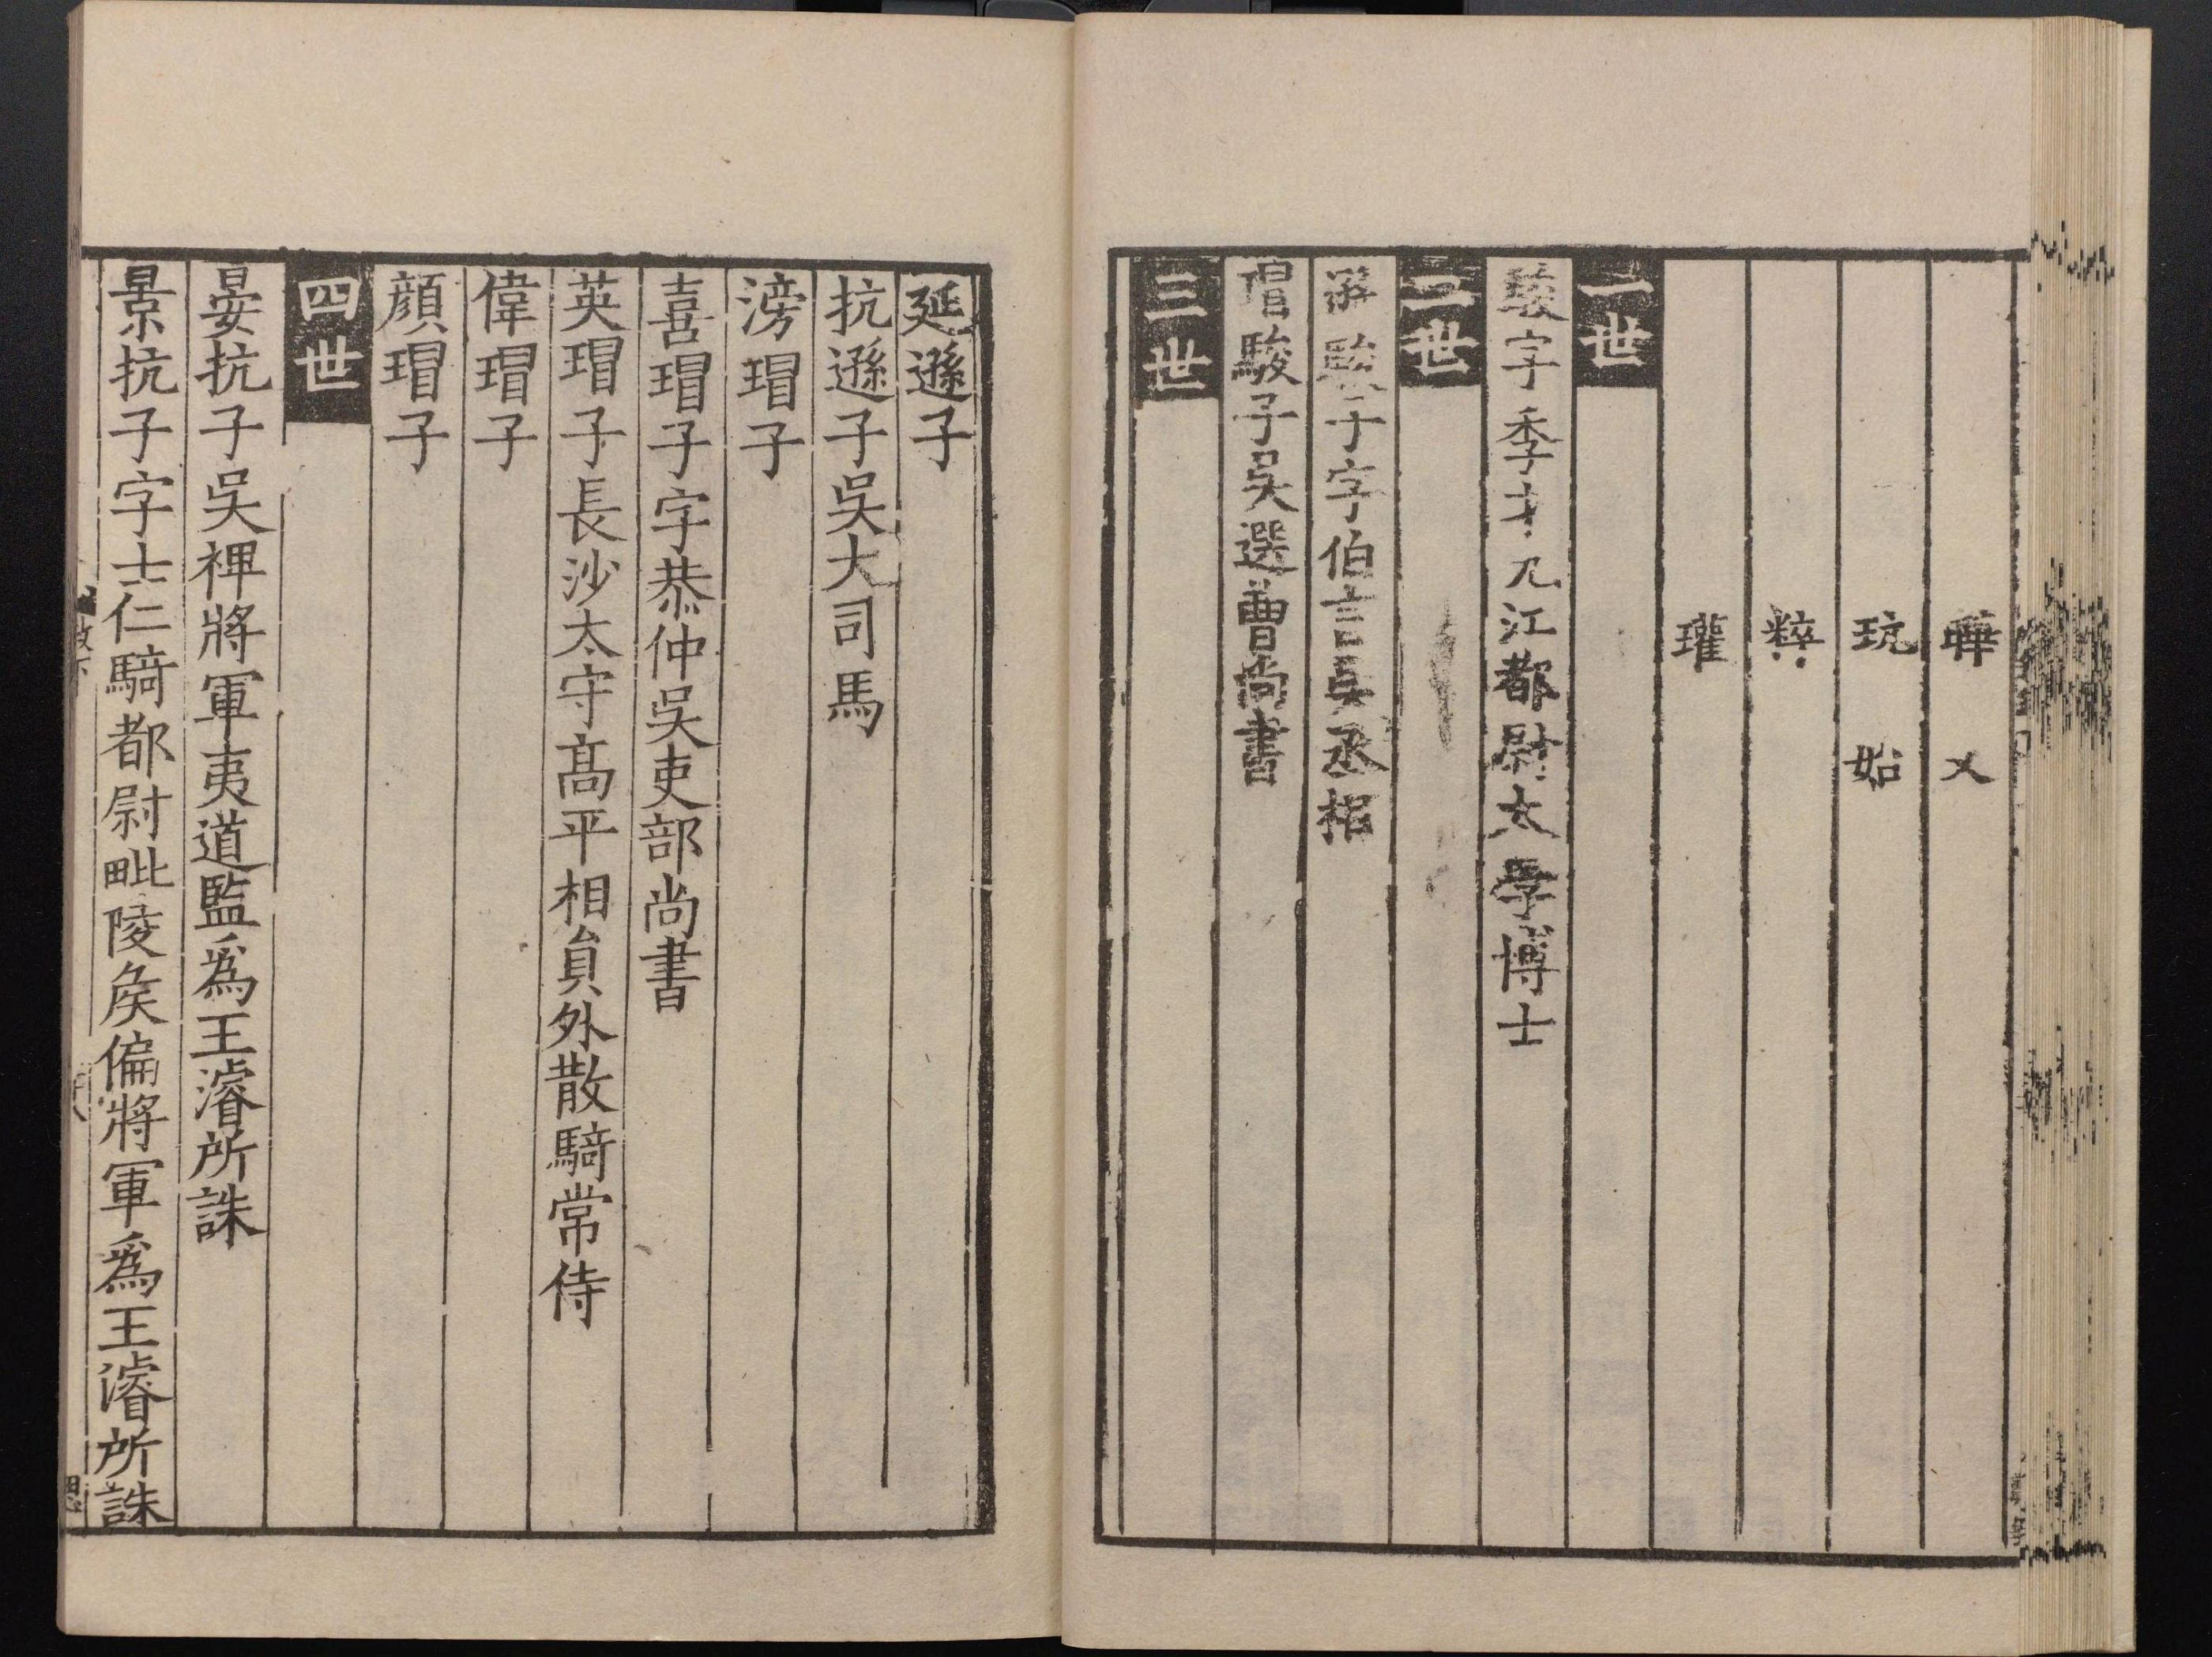 曄 乂
玩 始
粹
瓘
一世
駿字季才九江都尉太學博士
二世
遜駿子字伯言吳丞相
瑁駿子吳選曹尚書
三世
延遜子
抗遜子吳大司馬
滂瑁子
喜瑁子字恭仲吳吏部尚書
英瑁子長沙太守髙平相貟外散騎常侍
偉瑁子
顔瑁子
四世
晏抗子吳裨將軍夷道監爲王濬所誅
景抗子字士仁騎都尉毗陵矦偏將軍爲王濬所誅